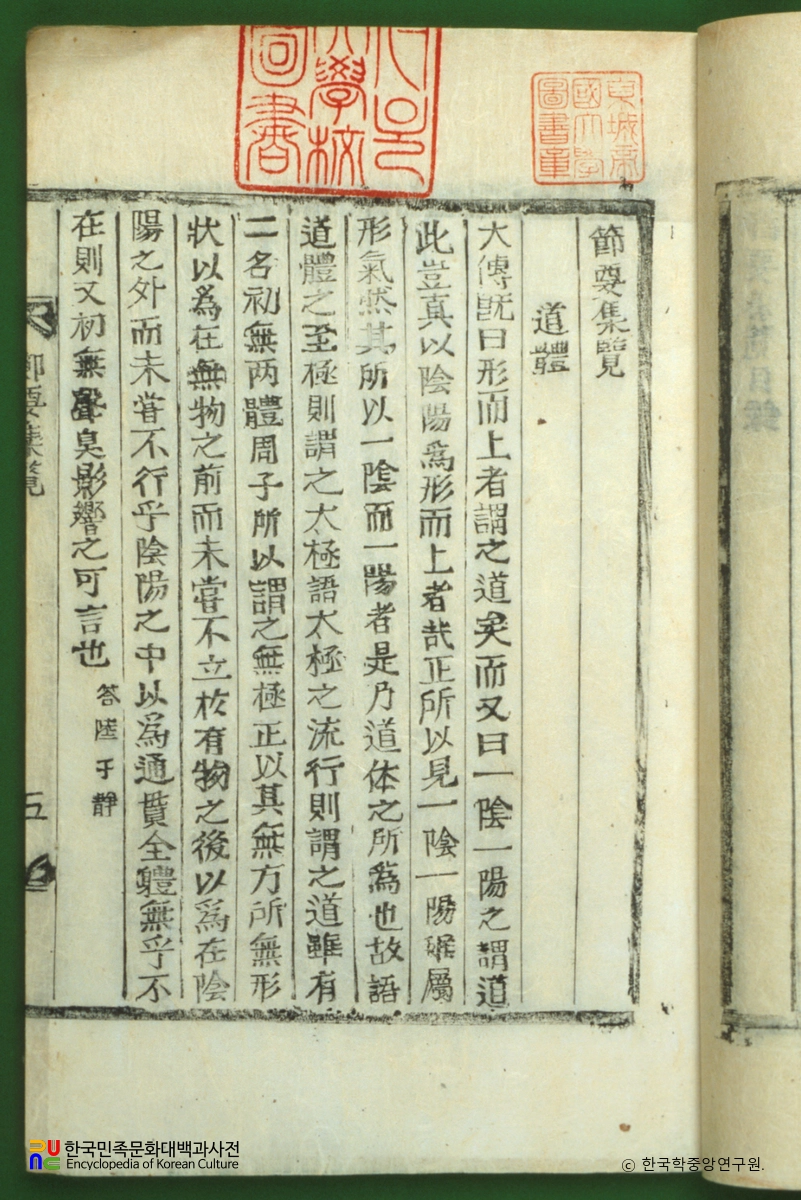 節要集覽
道體
大傳既曰形而上者謂之道矣而又曰一陰一陽之謂道
此豈真以陰陽爲形而上者哉正所以見一陰一陽雖屬
形氣然其所以一陰而一陽者是乃道体之所爲也故語
道體之至極則謂之太極語太極之流行則謂之道雖有
二名初無两體周子所以謂之無極正以其無方所無形
狀以爲在無物之前而未嘗不立於有物之後以爲在陰
陽之外而未嘗不行乎陰陽之中以爲通貫全體無乎不
在則又初無聲臭影響之可言也
答陸子靜
節要集覽
五
京城帝
國大學
圖書章
學校
圖書
한국민족문화대백과사전
Encyclopedia of Korean Culture
© 한국학중앙연구원.